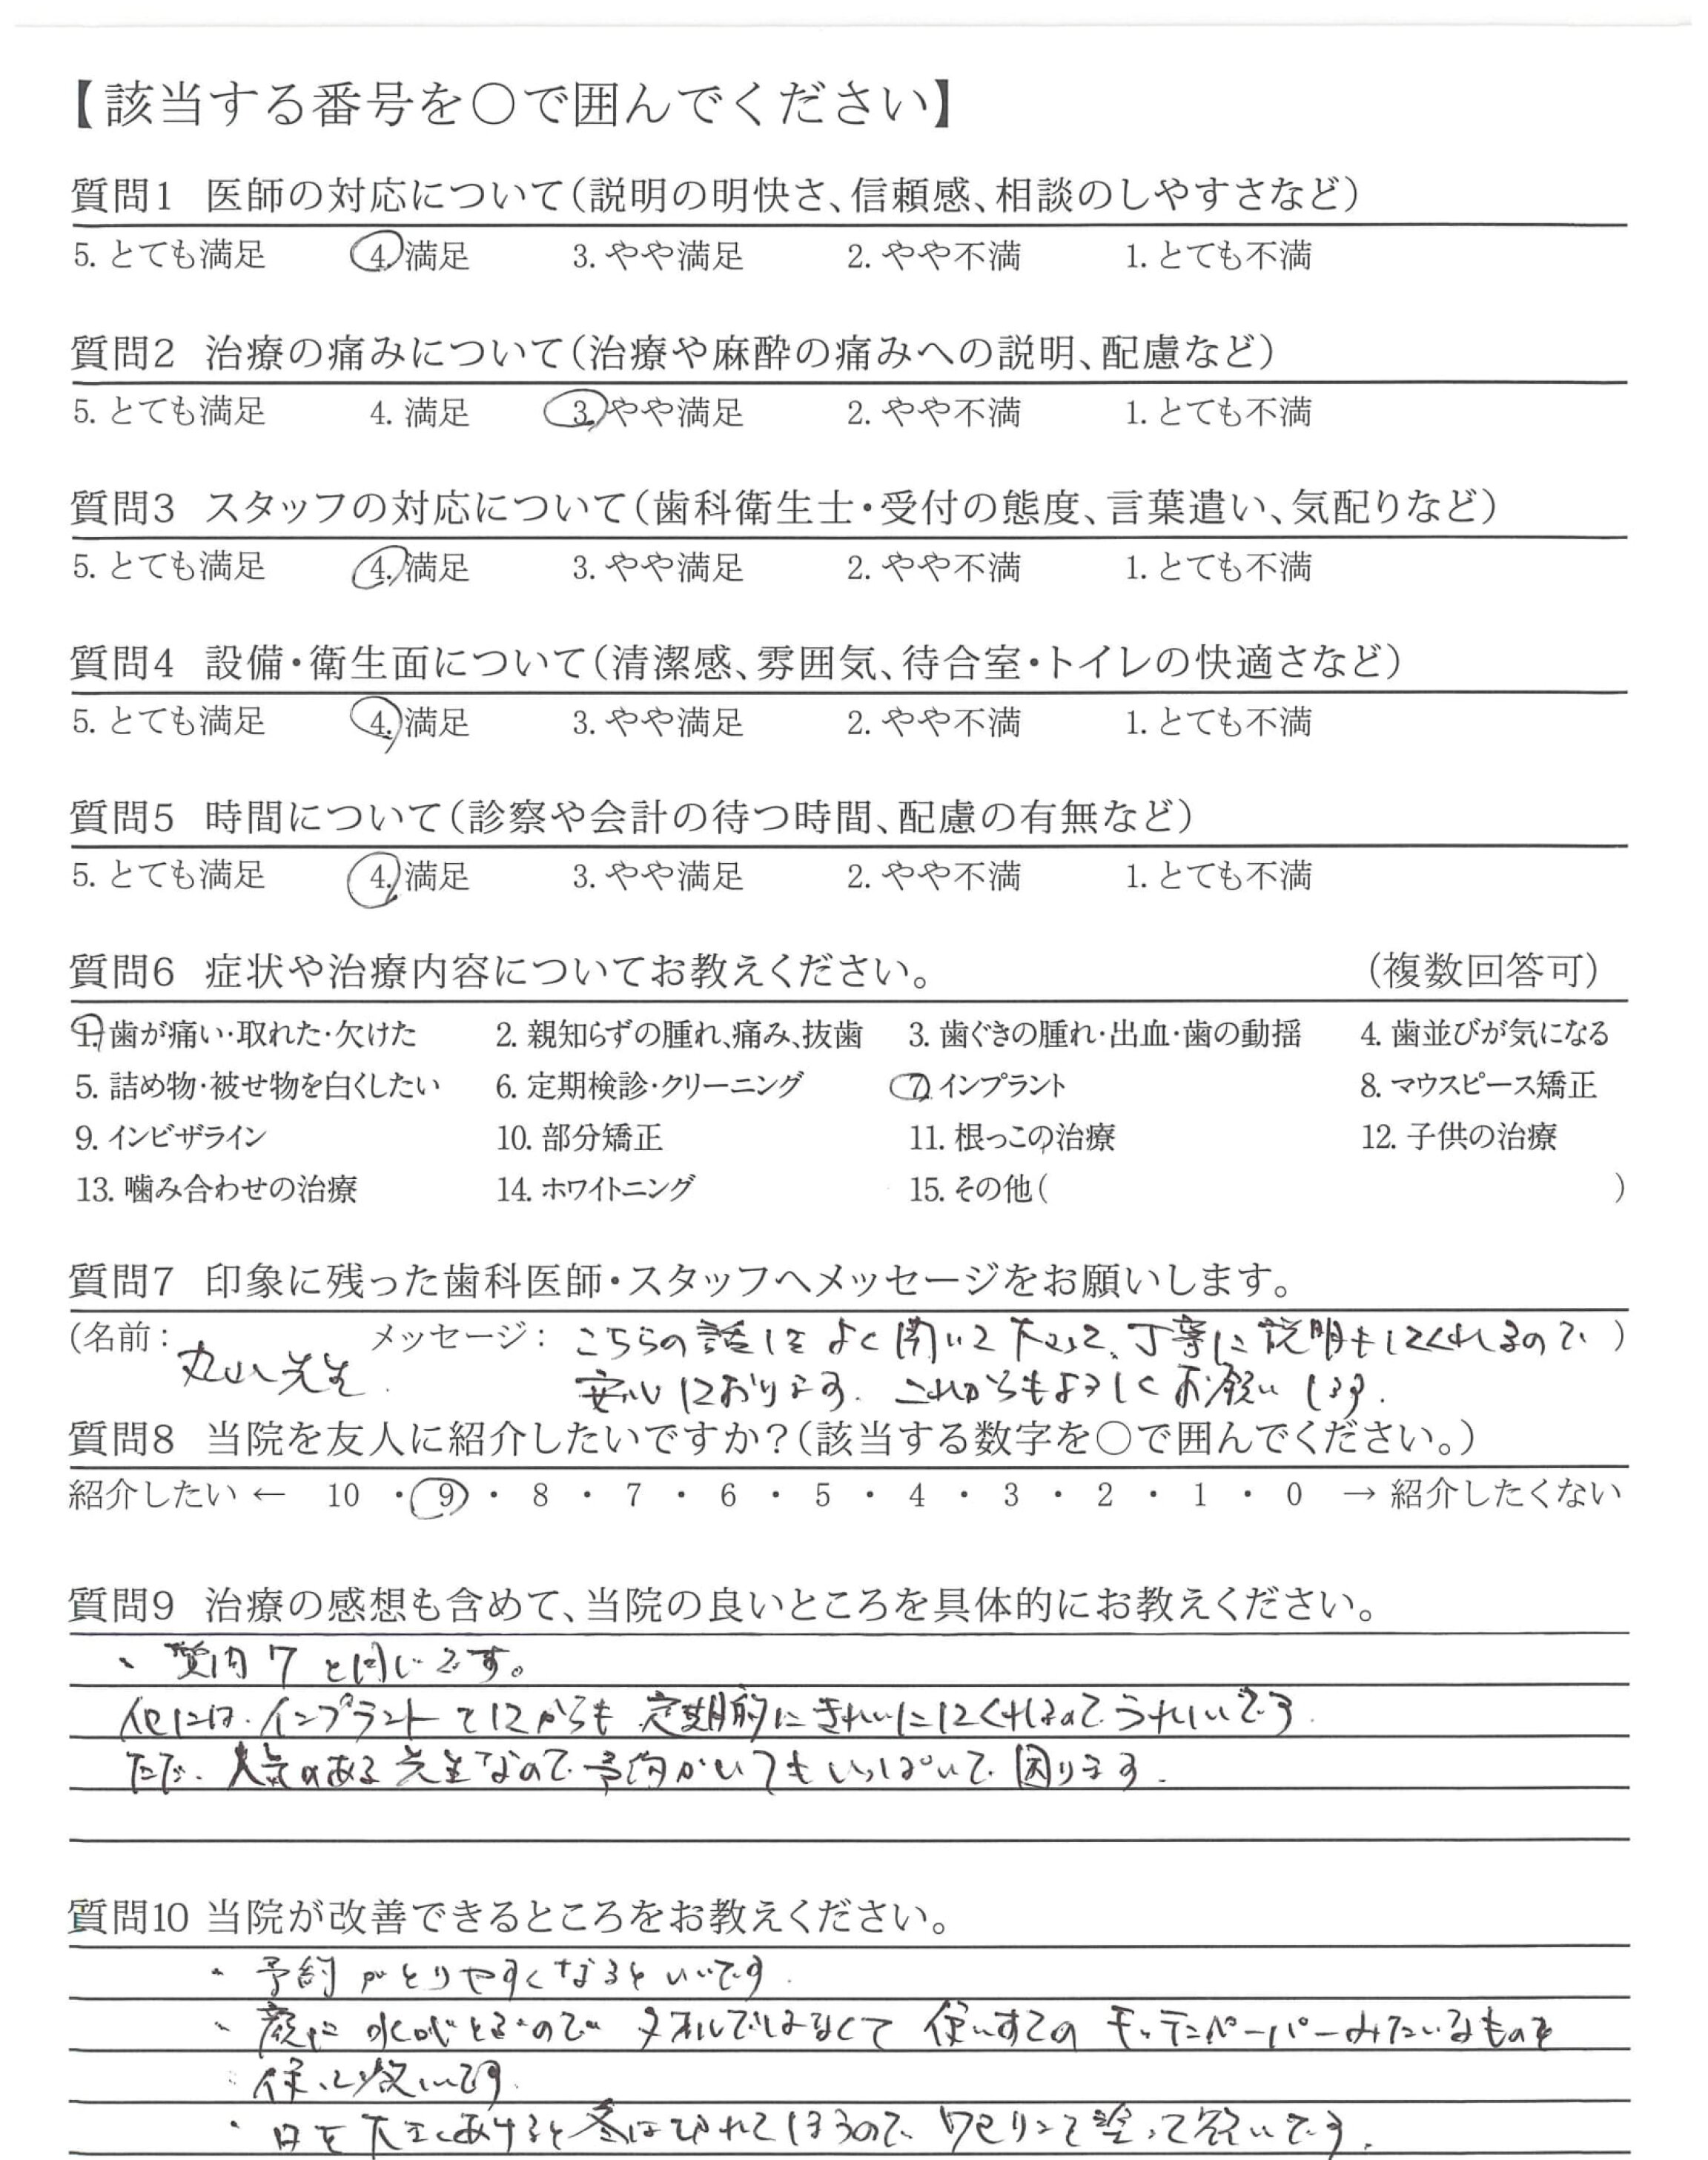 【該当する番号を○で囲んでください】
質問1 医師の対応について(説明の明快さ、信頼感、相談のしやすさなど)
5. とても満足 4. 満足 3. やや満足 2. やや不満 1. とても不満
質問2 治療の痛みについて(治療や麻酔の痛みへの説明、配慮など)
5. とても満足 4. 満足 3. やや満足 2. やや不満 1. とても不満
質問3 スタッフの対応について(歯科衛生士・受付の態度、言葉遣い、気配りなど)
5. とても満足 4. 満足 3. やや満足 2. やや不満 1. とても不満
質問4 設備・衛生面について(清潔感、雰囲気、待合室・トイレの快適さなど)
5. とても満足 4. 満足 3. やや満足 2. やや不満 1. とても不満
質問5 時間について(診察や会計の待つ時間、配慮の有無など)
5. とても満足 4. 満足 3. やや満足 2. やや不満 1. とても不満
質問6 症状や治療内容についてお教えください。 (複数回答可)
1. 歯が痛い・取れた・欠けた 2. 親知らずの腫れ、痛み、抜歯 3. 歯ぐきの腫れ・出血・歯の動揺 4. 歯並びが気になる
5. 詰め物・被せ物を白くしたい 6. 定期検診・クリーニング 7. インプラント 8. マウスピース矯正
9. インビザライン 10. 部分矯正 11. 根っこの治療 12. 子供の治療
13. 噛み合わせの治療 14. ホワイトニング 15. その他( )
質問7 印象に残った歯科医師・スタッフへメッセージをお願いします。
(名前: 丸山先生 メッセージ: こちらの話しをよく聞いて下さって、丁寧に説明もしてくれるので )
安心しております。これからもよろしくお願いします。
質問8 当院を友人に紹介したいですか?(該当する数字を○で囲んでください。)
紹介したい ← 10 ・ 9 ・ 8 ・ 7 ・ 6 ・ 5 ・ 4 ・ 3 ・ 2 ・ 1 ・ 0 → 紹介したくない
質問9 治療の感想も含めて、当院の良いところを具体的にお教えください。
、質問7と同じです。
他には、インプラントしてからも定期的にきれいにしてくれるのでうれしいです。
ただ、人気のある先生なので予約がいつもいっぱいで困ります。
質問10 当院が改善できるところをお教えください。
・予約がとりやすくなるといいです。
・顔に水がとぶのでタオルではなくて使いすての ペーパーみたいなものを
使って欲しいです。
・口を大きくあけると冬は切れてしまうので、ワセリンを塗って欲しいです。